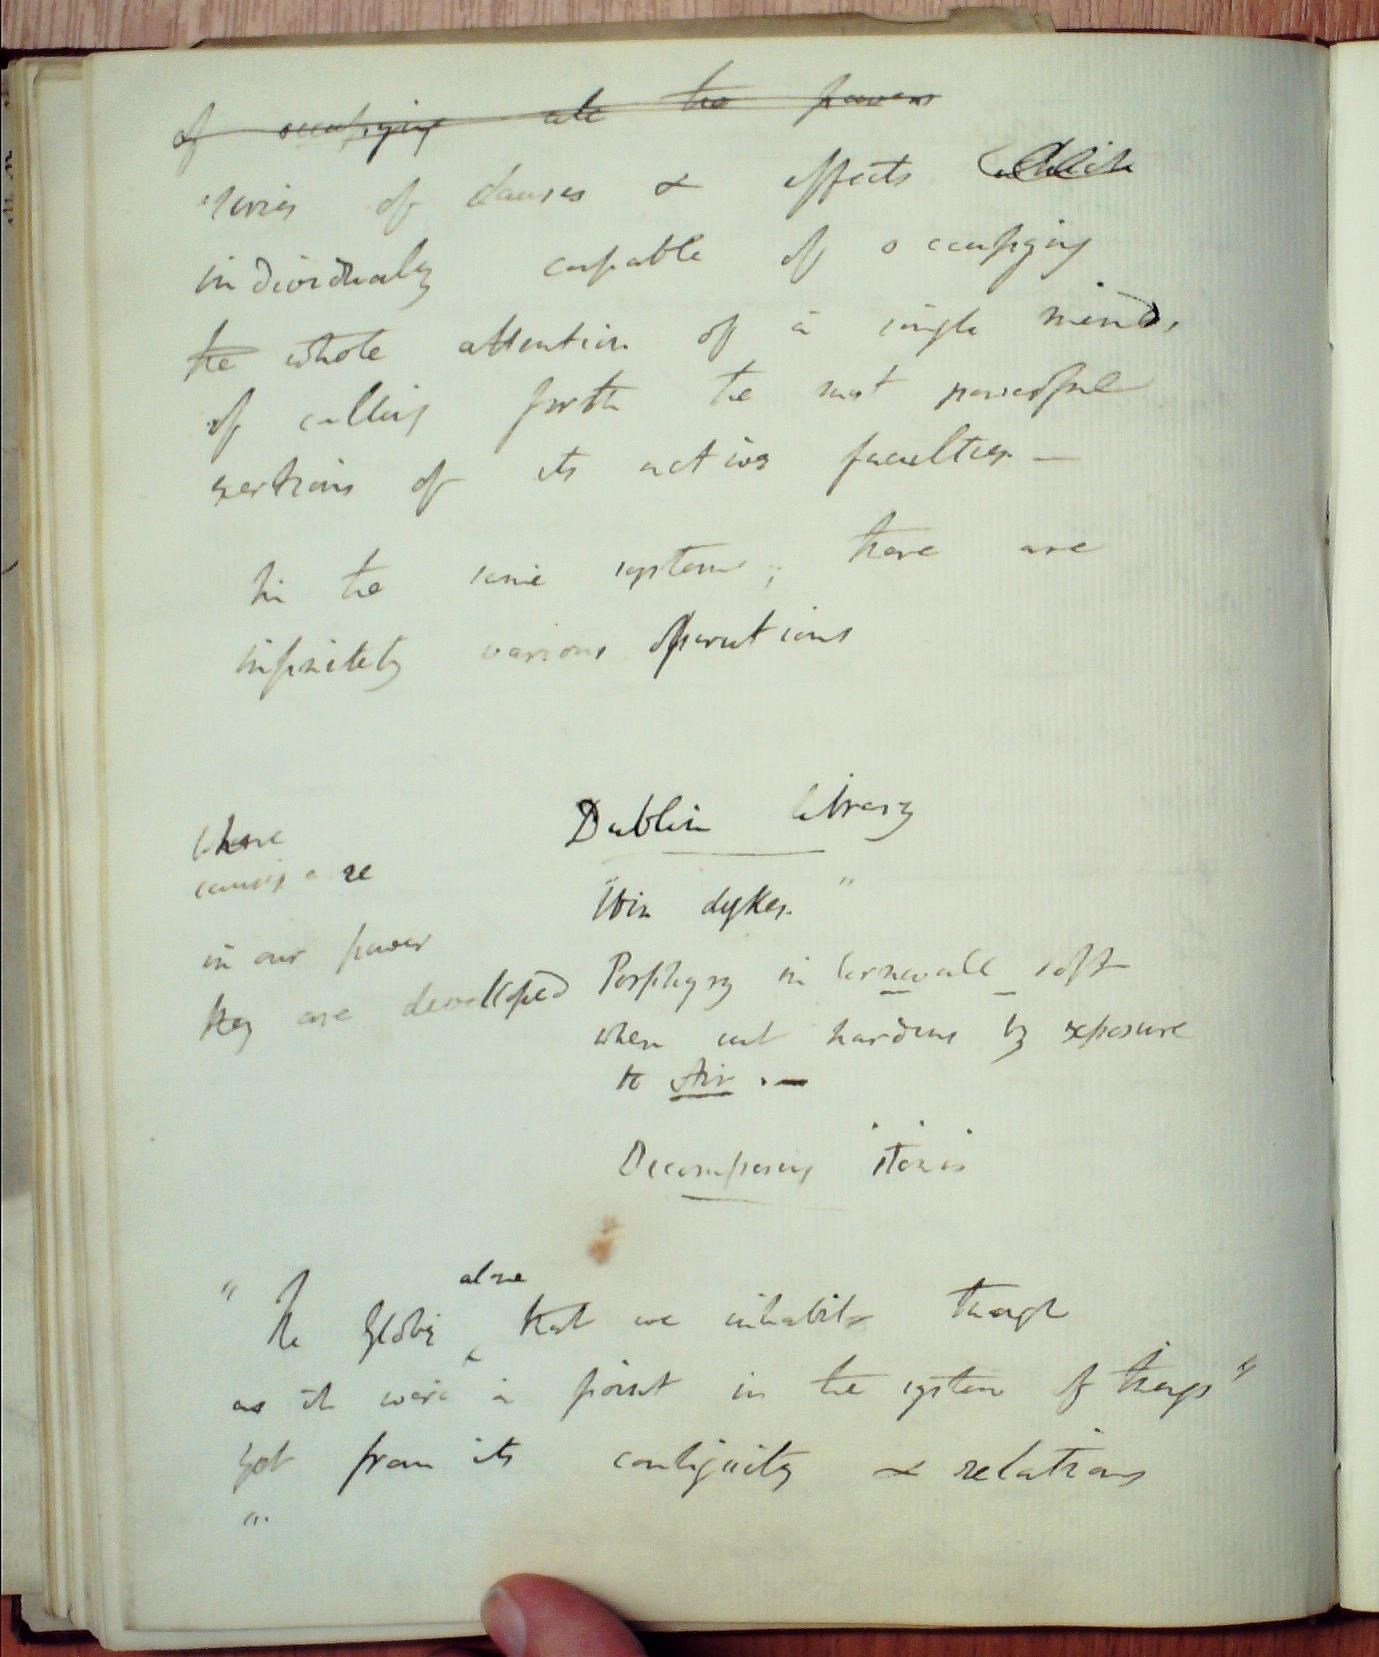 of occupying all the powers
series of causes & effects which
individually capable of occupying
the whole attention of a single mind,
of calling forth the most powerful
exertions of its active faculties. —
In the same system; there are
infinitely various operations
Dublin library
"Whin dykes."
Porphyry in Cornwall soft
when cut hardens by exposure
to Air. —
Decomposing stones
where
causes are
in our power
they are developed
" The Globe alone that we inhabit though
as it were a point in the system of things"
yet from its contiguity & relations
"